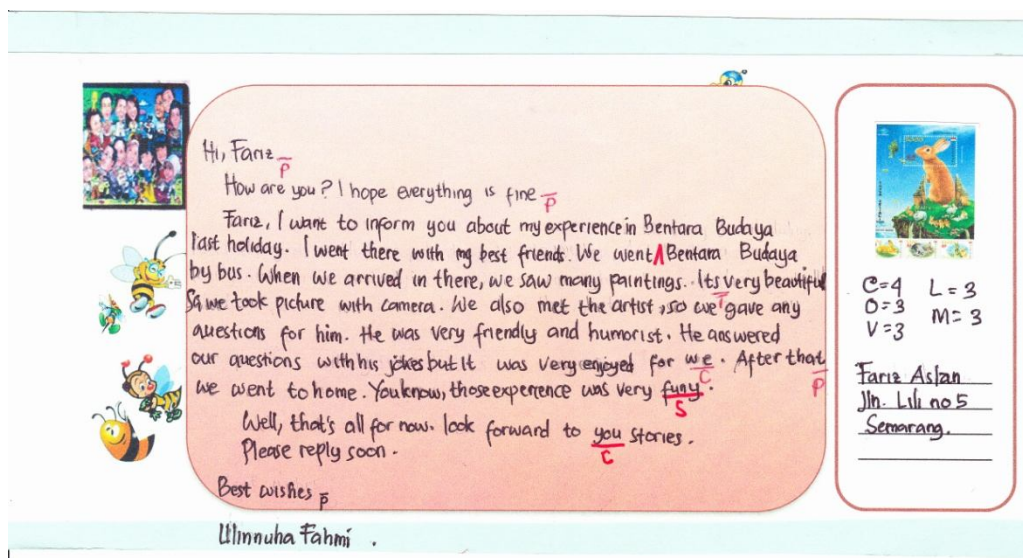 Hi, Fariz
P
How are you? I hope everything is fine
P
Fariz, I want to inform you about my experience in Bentara Budaya
last holiday. I went there with my best friends. We went Bentara Budaya
by bus. When we arrived in there, we saw many paintings. Its very beautiful
P
So we took picture with camera. We also met the artist, so we gave any
questions for him. He was very friendly and humorist. He answered
our questions with his jokes but it was very enjoyed for we. After that
C
P
we went to home. You know, those experience was very funy.
S
Well, that's all for now. look forward to you stories.
C
Please reply soon.
Best wishes
P
Ulinnuha Fahmi.
C=4 L=3
O=3 M=3
V=3
Fariz Aslan
Jln. Lili no 5
Semarang.